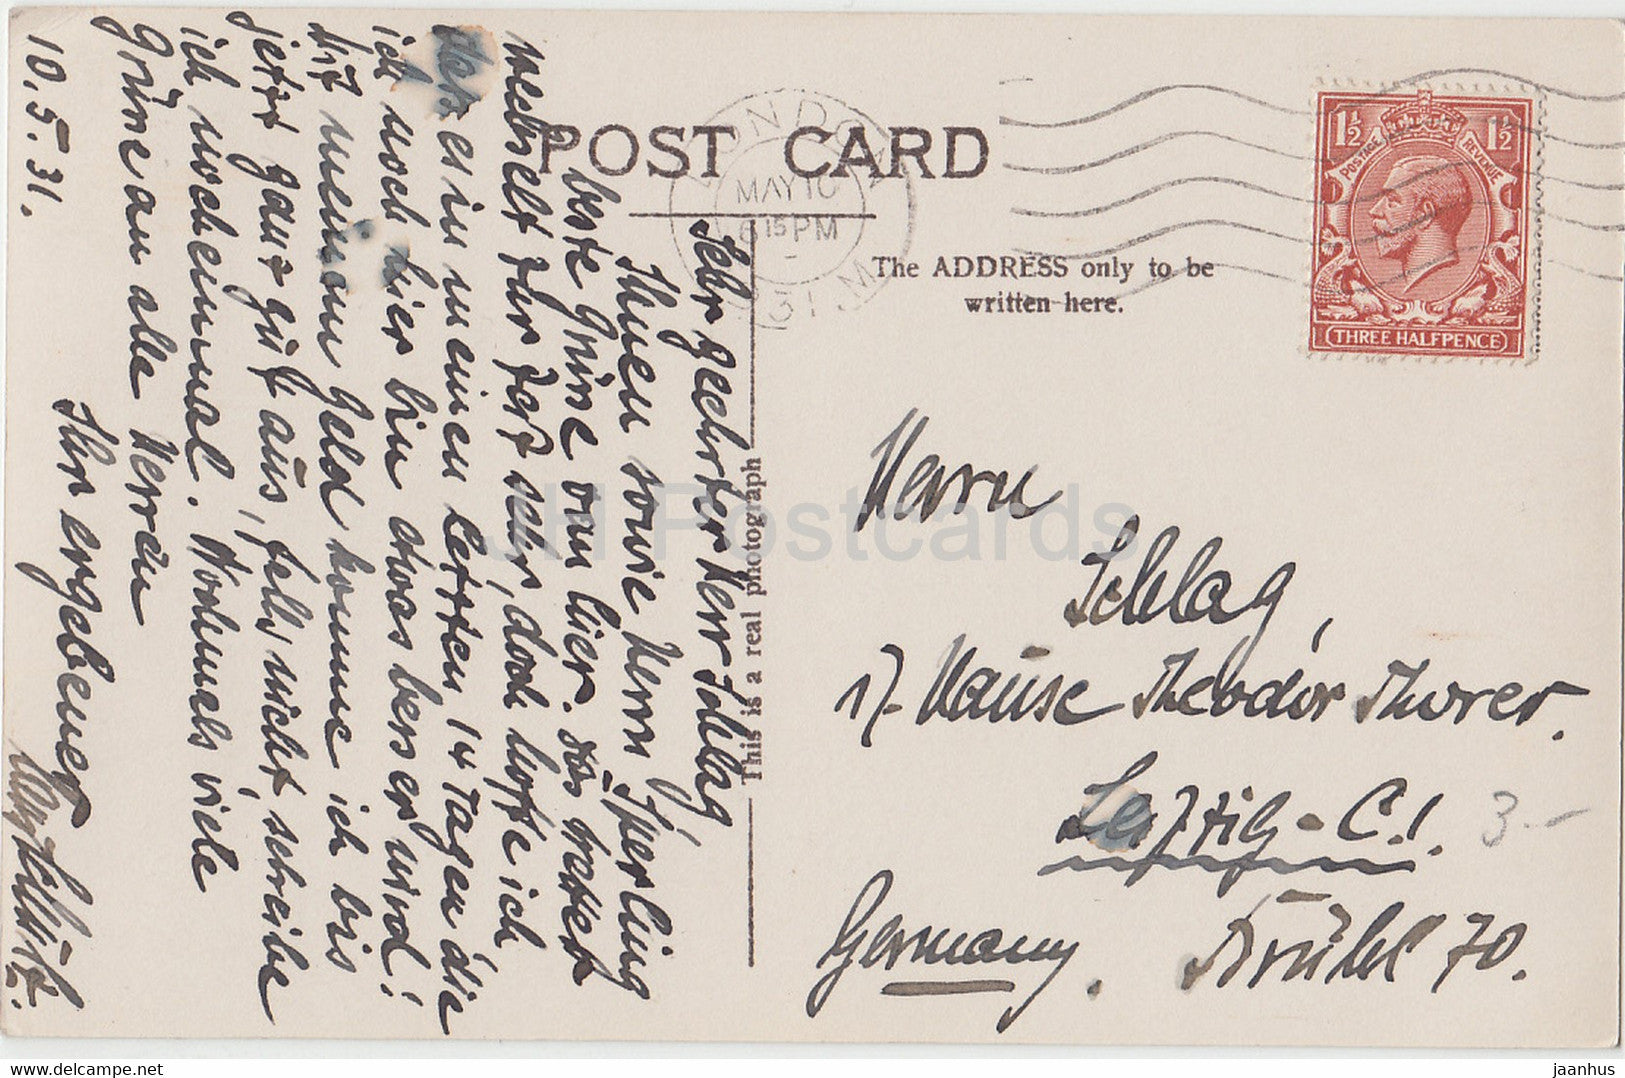 POST CARD
The ADDRESS only to be
written here.
This is a real photograph
LONDON
MAY 10
6 15 PM
31
1½ 1½
POSTAGE REVENUE
THREE HALFPENCE
Sehr geehrter Herr Schlag
Ihnen sowie Herrn Sperling
beste Grüße von hier. Das Wetter
wechselt zur Zeit sehr, doch hoffe ich
daß es in meinen letzten 14 Tagen die
ich noch hier bin etwas besser wird!
Mit meinem Geld komme ich bis
jetzt ganz gut aus, falls nicht, schreibe
ich nocheinmal. Nochmals viele
Grüße an alle Herren
Ihr ergebener
10.5.31.
Herrn
Schlag,
i/. Hause Theodor Thorer.
Leipzig-C.1.
Brühl 70.
Germany.
3.-
JH Postcards
jaanhus
www.delcampe.net